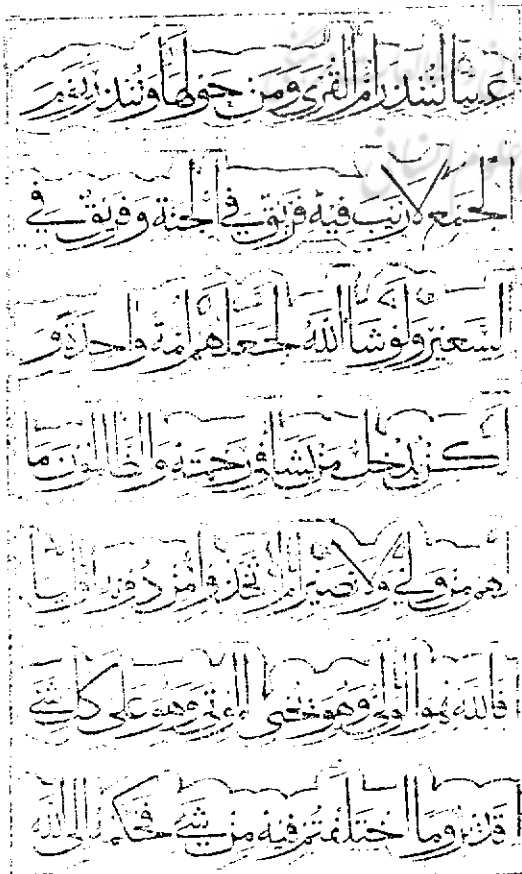 عربيا لتنذر ام القرى ومن حولها وتنذر يوم
الجمع لا ريب فيه فريق في الجنة وفريق في
لسعير ولو شا الله لجعلهم امة واحدة و
لكن يدخل من يشا في رحمته والظالمون ما
لهم من ولي ولا نصير ام اتخذوا من دونه اوليا
فالله هو الولي وهو يحيي الموتى وهو على كل شي
قدير وما اختلفتم فيه من شي فحكمه الى الله